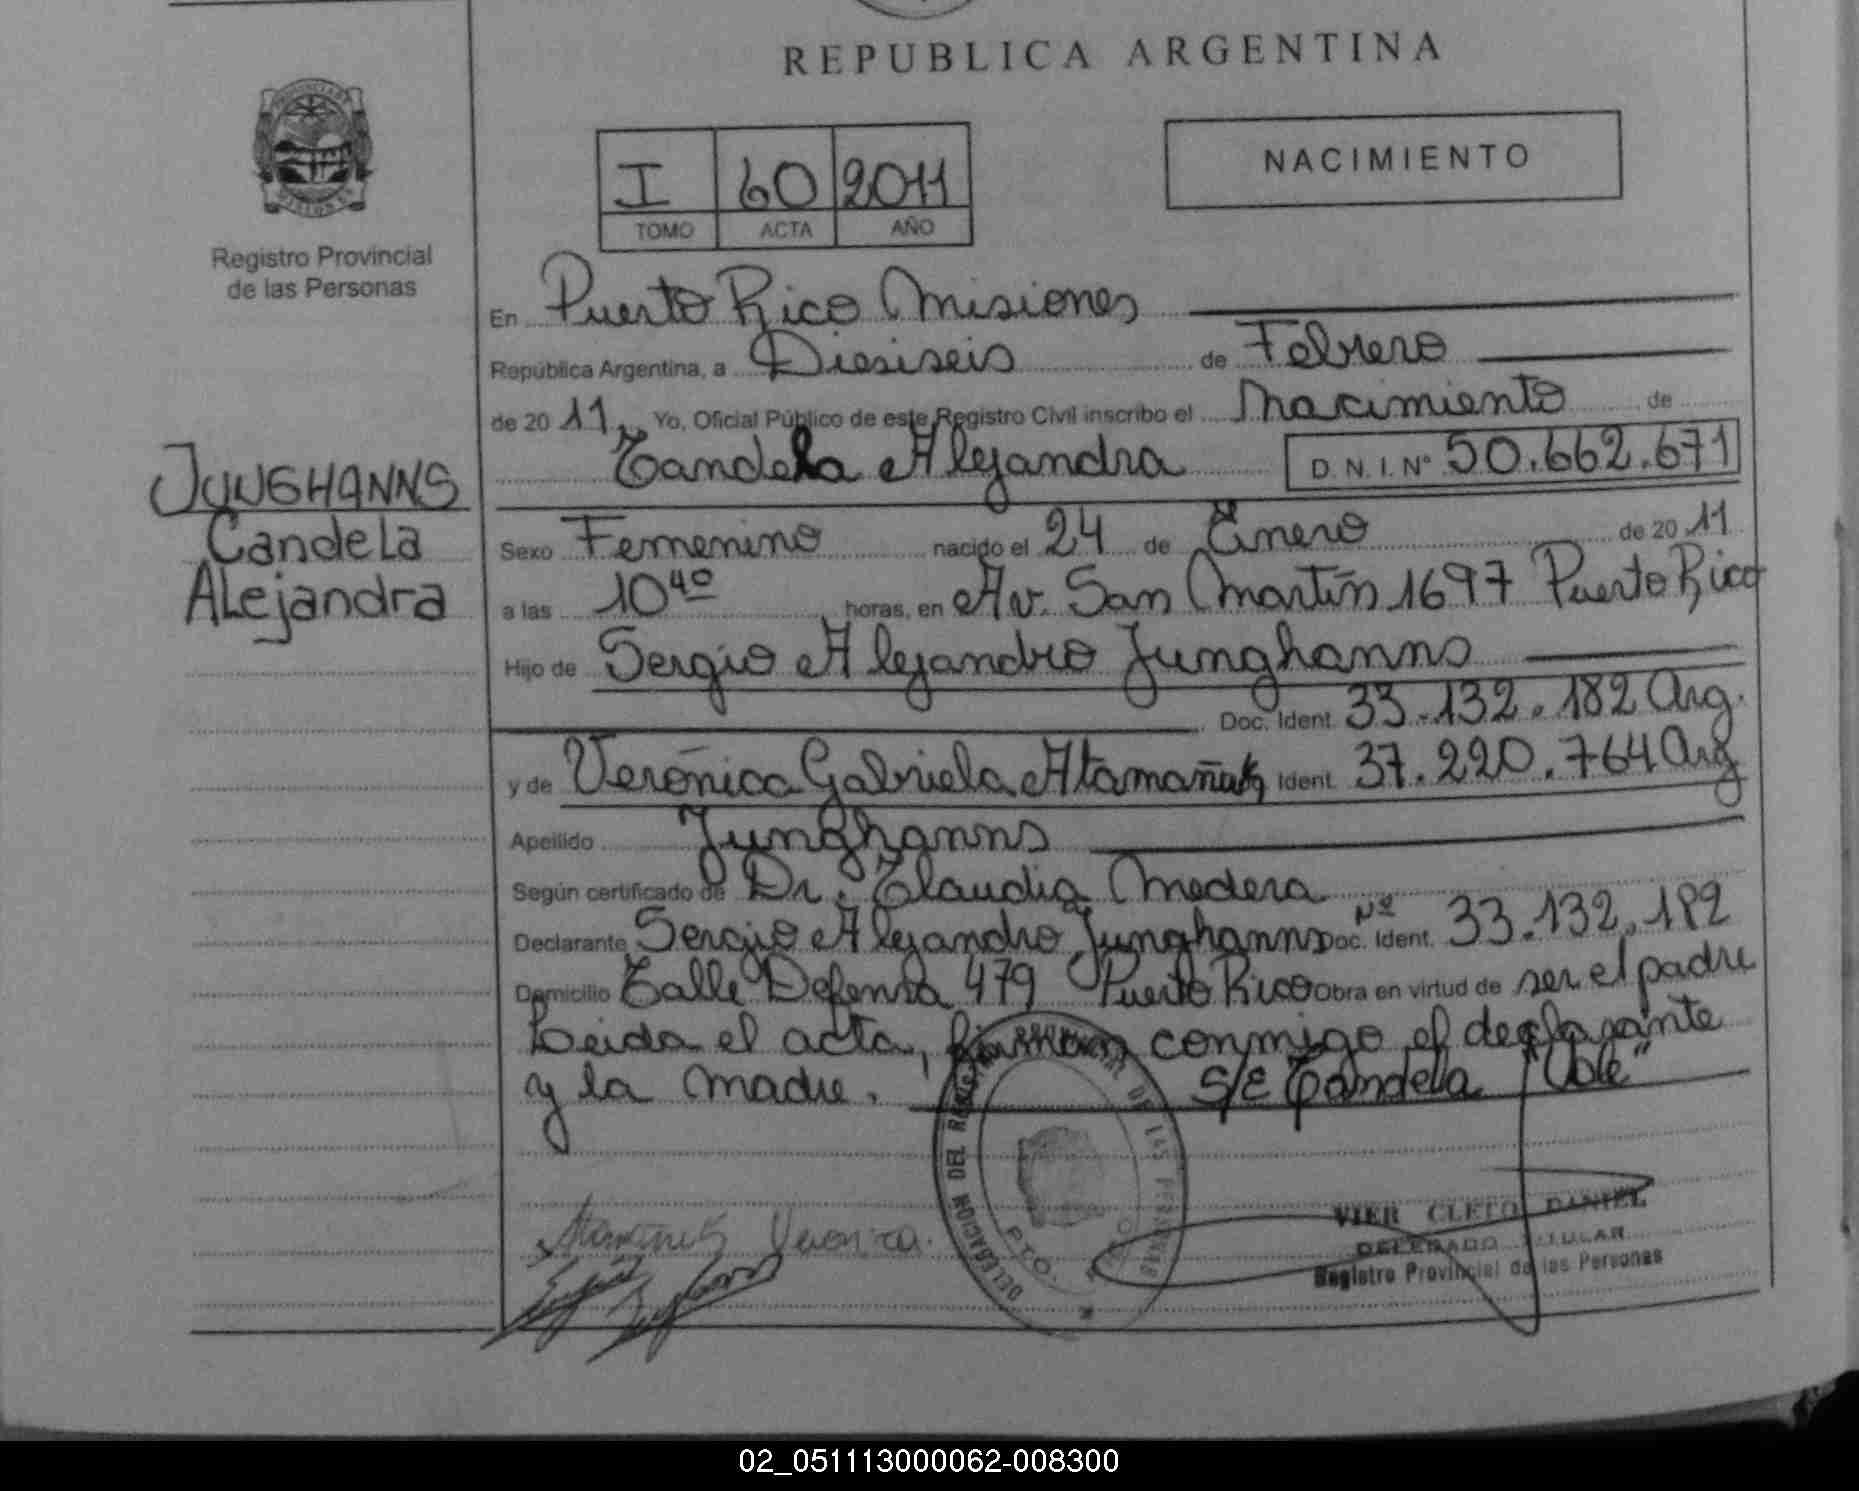 REPUBLICA ARGENTINA
PROVINCIA DE MISIONES
Registro Provincial
de las Personas
I 60 2011
TOMO ACTA AÑO
NACIMIENTO
JUNGHANNS
Candela
Alejandra
En Puerto Rico Misiones
República Argentina, a Diesiseis de Febrero
de 2011 Yo, Oficial Público de este Registro Civil inscribo el Nacimiento de
Candela Alejandra D.N.I. Nº 50.662.671
Sexo Femenino nacido el 24 de Enero de 2011
a las 10 40 horas, en Av. San Martín 1697 Puerto Rico
Hijo de Sergio Alejandro Junghanns
Doc. Ident. 33.132.182 Arg.
y de Verónica Gabriela Atamañuk Ident. 37.220.764 Arg
Apellido Junghanns
Según certificado de Dr. Claudia Madera
Declarante Sergio Alejandro Junghanns Doc. Nº Ident. 33.132.182
Domicilio Calle Defensa 479 Puerto Rico Obra en virtud de ser el padre
Leida el acta, firman conmigo el declarante
y la madre. S/E Candela "Vale"
DELEGACION DEL REGISTRO PROVINCIAL DE LAS PERSONAS
PTO. RICO
Veronica.
VIER CLETO DANIEL
DELEGADO TITULAR
Registro Provincial de las Personas
02_051113000062-008300